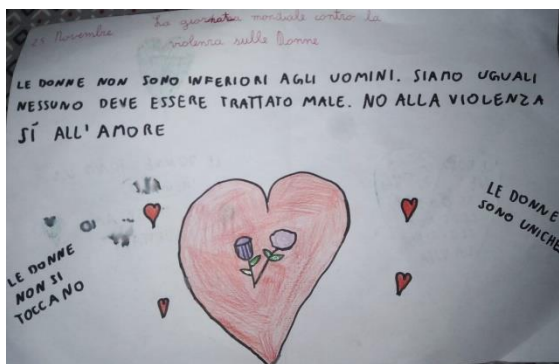 25 Novembre La giornata mondiale contro la
violenza sulle Donne
LE DONNE NON SONO INFERIORI AGLI UOMINI. SIAMO UGUALI
NESSUNO DEVE ESSERE TRATTATO MALE. NO ALLA VIOLENZA
SÍ ALL'AMORE
LE DONNE
NON SI
TOCCANO
LE DONNE
SONO UNICHE